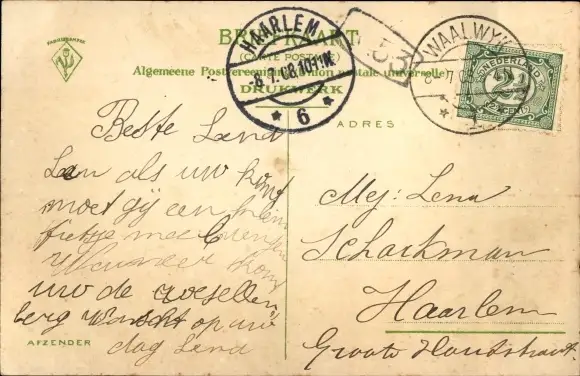 BRIEFKAART
(CARTE POSTALE)
Algemeene Postvereeniging (Union postale universelle)
DRUKWERK
HAARLEM
8.7.08.10-11N
6
WAALWYK
NEDERLAND
2½
2½ CENT
ADRES
Beste Lena
Lena als uw komt
moet gij een klein
fietsje mee brengen
Wanneer kom
uw de
berg op uw
dag Lena
AFZENDER
Mej: Lena
Schorkman
Haarlem
Groote Houtstraat